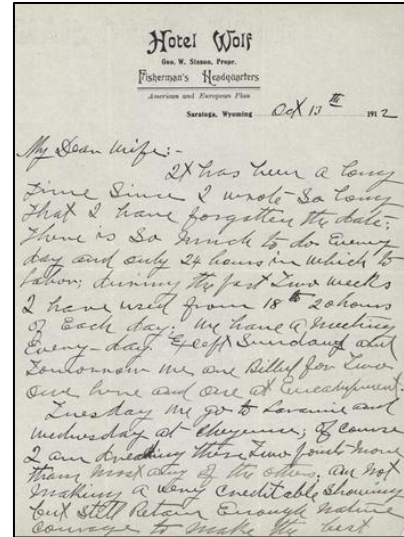 Hotel Wolf
Geo. W. Sisson, Propr.
Fisherman's Headquarters
American and European Plan
Saratoga, Wyoming Oct 13th 1912
My Dear Wife:-
It has been a long
time since I wrote so long
that I have forgotten the date;
there is so much to do Every
day and only 24 hours in which to
labor; during the past two weeks
I have used from 18 to 20 hours
of Each day; we have a meeting
Every-day Except Sundays and
Tomorrow we are Billed for Two
one here and one at Encampment.
Tuesday we go to Laramie and
Wednesday at Cheyenne; of course
I am dreading these Two points more
than most any of the others; am not
making a very creditable showing
but still Retain Enough native
courage to make the best